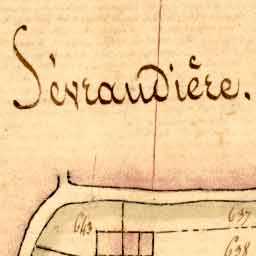 Sévraudière.
643
637
638